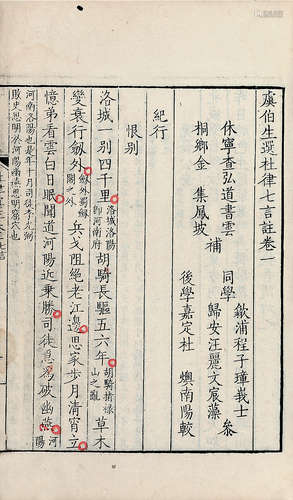 虞伯生選杜律七言註卷一
休寧查弘道書雲
補
桐鄉金 集鳳坡
同學
歙浦程子 峩士
叅
歸安汪麗文宸藻
後學嘉定杜 輿南陽較
紀行
恨别
洛城一别四千里洛城洛陽即河南府胡騎長驅五六年胡騎指祿山之亂草木
變衰行劒外劒外蜀劒閣之外兵戈阻絕老江邊思家步月清宵立
憶弟看雲白日眠聞道河陽近乗勝司徒急為破幽燕河陽
河南洛陽也是年十月司徒李光弼
敗史思明於河陽幽燕思明窟穴也